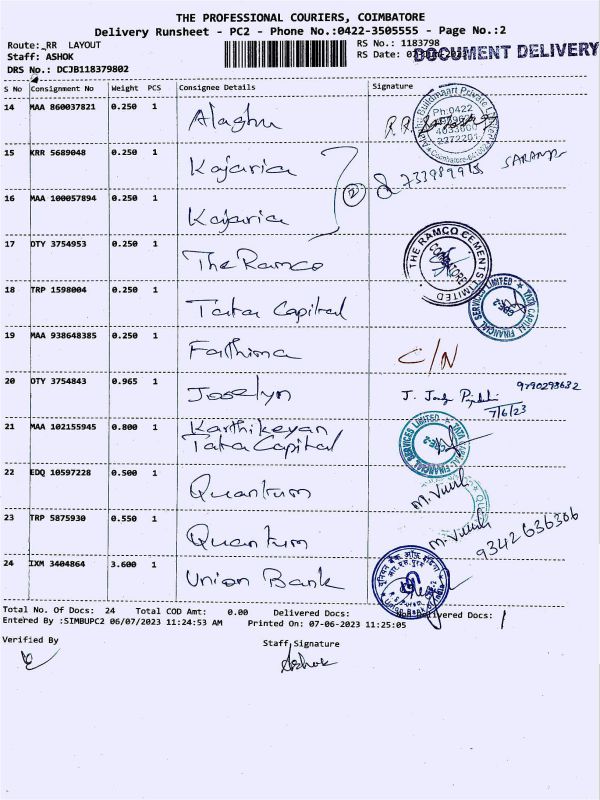 THE PROFESSIONAL COURIERS, COIMBATORE
Delivery Runsheet - PC2 - Phone No.:0422-3505555 - Page No.:2
Route: RR LAYOUT RS No.: 1183798
Staff: ASHOK RS Date: DOCUMENT DELIVERY
DRS No.: DCJB118379802
S No Consignment No Weight PCS Consignee Details Signature
14 MAA 860037821 0.250 1 Alaghu
Ph:0422
4033800
2372201
15 KRR 5689048 0.250 1 Kajaria
16 MAA 100057894 0.250 1 Kajaria 2
17 OTY 3754953 0.250 1 The Ramco THE RAMCO CEMENTS LIMITED
18 TRP 1598004 0.250 1 Tata Capital TATA CAPITAL FINANCIAL SERVICES LIMITED
19 MAA 938648385 0.250 1 Fathima C/N
20 OTY 3754843 0.965 1 Joselyn J. 9790298682
7/6/23
21 MAA 102155945 0.800 1 Karthikeyan
Tata Capital TATA CAPITAL FINANCIAL SERVICES LIMITED
22 EDQ 10597228 0.500 1 Quantum
23 TRP 5875930 0.550 1 Quantum 9342636306
24 IXM 3404864 3.600 1 Union Bank
Total No. Of Docs: 24 Total COD Amt: 0.00 Delivered Docs: Non Delivered Docs: 1
Entered By :SIMBUPC2 06/07/2023 11:24:53 AM Printed On: 07-06-2023 11:25:05
Verified By Staff Signature
Ashok